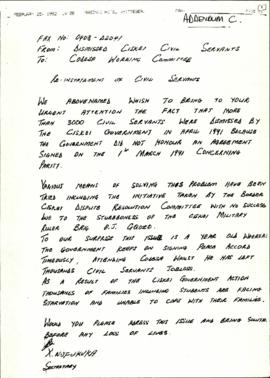 FEBRUARY 25 1992
ADDENDUM C.
FAX NO: 0408-22041
FROM: DISMISSED CISKEI CIVIL SERVANTS
TO: CODESA WORKING COMMITTEE
RE-INSTATEMENT OF CIVIL SERVANTS
WE ABOVENAMED WHISH TO BRING TO YOUR
URGENT ATTENTION THE FACT THAT MORE
THAN 3000 CIVIL SERVANTS WERE DISMISSED BY
THE CISKEI GOVERNMENT IN APRIL 1991 BECAUSE
THE GOVERNMENT DID NOT HONOUR AN AGREEMENT
SIGNED ON THE 1st MARCH 1991 CONCERNING
PARITY.
VARIOUS MEANS OF SOLVING THIS PROBLEM HAVE BEEN
TRIED INCLUDING THE INITIATIVE TAKEN BY THE BORDER
CISKEI DISPUTE RESOLUTION COMMITTEE WITH NO SUCCESS
DUE TO THE STUBBORNESS OF THE CISKEI MILITARY
RULER BRIG O.J. GQOZO.
TO OUR SURPRISE THIS ISSUE IS A YEAR OLD WHEREAS
THE GOVERNMENT KEEPS ON SIGNING PEACE ACCORD
TIMEOUSLY, ATTENDING CODESA WHILST HE HAS LEFT
THOUSANDS CIVIL SERVANTS JOBLESS.
AS A RESULT OF THE CISKEI GOVERNMENT ACTION
THOUSANDS OF FAMILIES INCLUDING STUDENTS ARE FACING
STARVATION AND UNABLE TO COPE WITH THEIR FAMILIES.
WOULD YOU PLEASE ADRESS THIS ISSUE AND BRING SANITY
BEFORE ANY LOSS OF LIVES.
SECRETARY